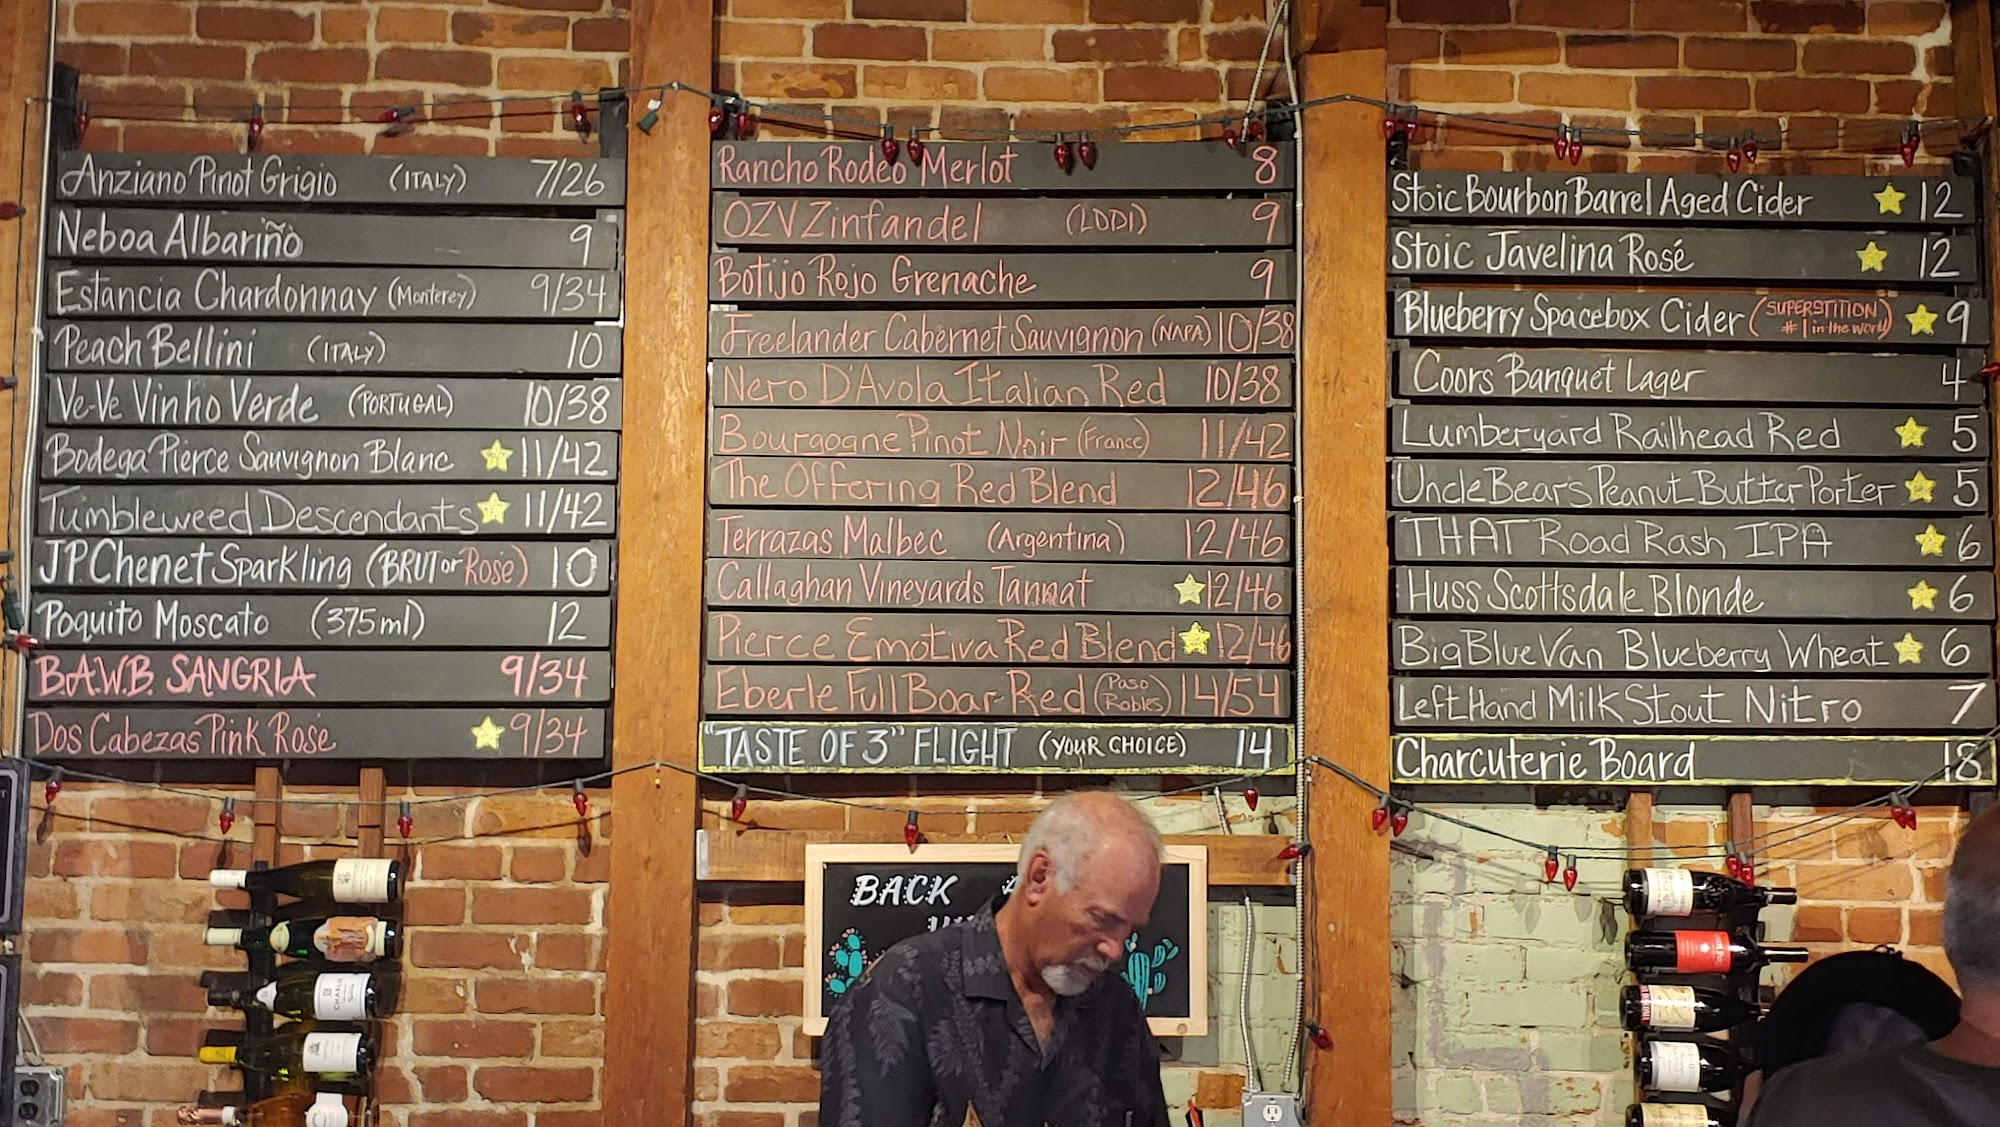 Anziano Pinot Grigio (ITALY) 7/26
Neboa Albariño 9
Estancia Chardonnay (Monterey) 9/34
Peach Bellini (ITALY) 10
Ve-Ve Vinho Verde (PORTUGAL) 10/38
Bodega Pierce Sauvignon Blanc 11/42
Tumbleweed Descendants 11/42
JP. Chenet Sparkling (BRUT or Rosé) 10
Poquito Moscato (375ml) 12
B.A.W.B. SANGRIA 9/34
Dos Cabezas Pink Rosé 9/34
Rancho Rodeo Merlot 8
OZV Zinfandel (LODI) 9
Botijo Rojo Grenache 9
Freelander Cabernet Sauvignon (NAPA) 10/38
Nero D'Avola Italian Red 10/38
Bourgogne Pinot Noir (France) 11/42
The Offering Red Blend 12/46
Terrazas Malbec (Argentina) 12/46
Callaghan Vineyards Tannat 12/46
Pierce Emotiva Red Blend 12/46
Eberle Full Boar-Red (Paso Robles) 14/54
"TASTE OF 3" FLIGHT (YOUR CHOICE) 14
Stoic Bourbon Barrel Aged Cider 12
Stoic Javelina Rosé 12
Blueberry Spacebox Cider (SUPERSTITION #1 in the world) 9
Coors Banquet Lager 4
Lumberyard Railhead Red 5
Uncle Bear's Peanut Butter Porter 5
THAT Road Rash IPA 6
Huss Scottsdale Blonde 6
Big Blue Van Blueberry Wheat 6
Left Hand Milk Stout Nitro 7
Charcuterie Board 18
BACK